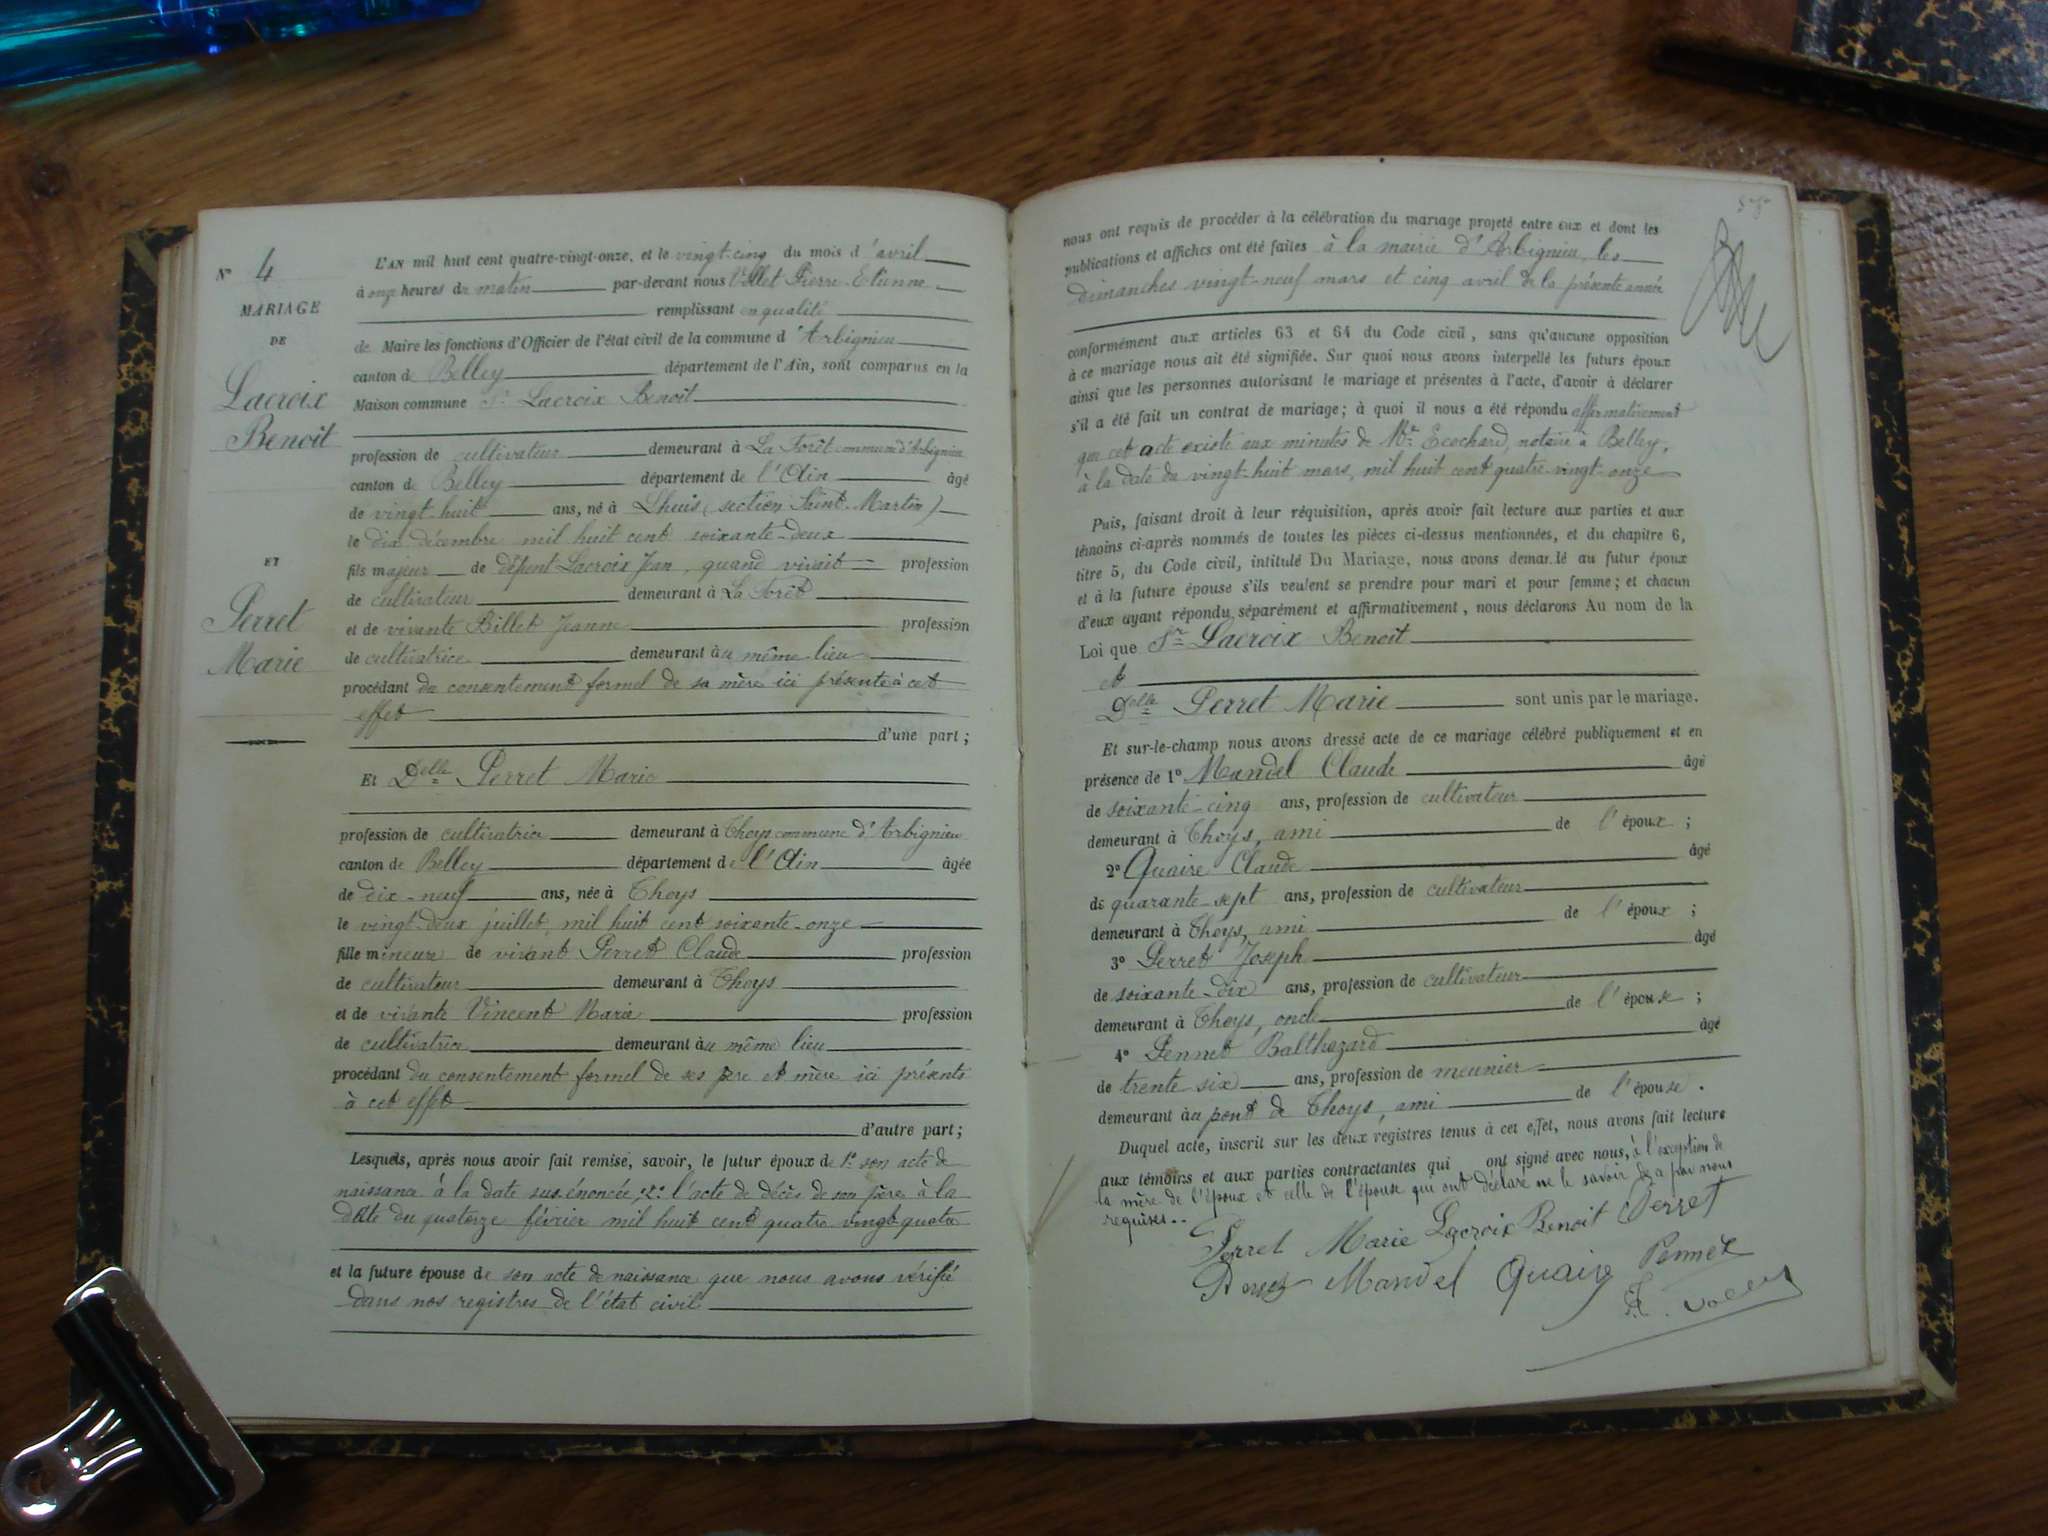 N° 4
MARIAGE
DE
Lacroix
Benoît
ET
Perret
Marie
L'AN mil huit cent quatre-vingt-onze, et le vingt-cinq du mois d'avril
à onze heures du matin par-devant nous Vollet Pierre-Etienne
remplissant en qualité
de Maire les fonctions d'Officier de l'état civil de la commune d'Arbignieu
canton de Belley département de l'Ain, sont comparus en la
Maison commune Sr Lacroix Benoît
profession de cultivateur demeurant à La Forêt commune d'Arbignieu
canton de Belley département de l'Ain âgé
de vingt-huit ans, né à Lhuis (section Saint-Martin)
le dix décembre mil huit cent soixante-deux
fils majeur de défunt Lacroix Jean, quand vivait profession
de cultivateur demeurant à La Forêt
et de vivante Billet Jeanne profession
de cultivatrice demeurant au même lieu
procédant du consentement formel de sa mère ici présente à cet
effet
d'une part;
Et Delle Perret Marie
profession de cultivatrice demeurant à Thoys commune d'Arbignieu
canton de Belley département de l'Ain âgée
de dix-neuf ans, née à Thoys
le vingt-deux juillet, mil huit cent soixante-onze
fille mineure de vivant Perret Claude profession
de cultivateur demeurant à Thoys
et de vivante Vincent Marie profession
de cultivatrice demeurant au même lieu
procédant du consentement formel de ses père et mère ici présents
à cet effet
d'autre part;
Lesquels, après nous avoir fait remise, savoir, le futur époux de 1° son acte de
naissance à la date sus-énoncée, 2° l'acte de décès de son père à la
date du quatorze février mil huit cent quatre vingt-quatre
et la future épouse de son acte de naissance que nous avons vérifié
dans nos registres de l'état civil
nous ont requis de procéder à la célébration du mariage projeté entre eux et dont les
publications et affiches ont été faites à la mairie d'Arbignieu, les
dimanches vingt-neuf mars et cinq avril de la présente année
conformément aux articles 63 et 64 du Code civil, sans qu'aucune opposition
à ce mariage nous ait été signifiée. Sur quoi nous avons interpellé les futurs époux
ainsi que les personnes autorisant le mariage et présentes à l'acte, d'avoir à déclarer
s'il a été fait un contrat de mariage; à quoi il nous a été répondu affirmativement
que cet acte existe aux minutes de Me Ecochard, notaire à Belley,
à la date du vingt-huit mars, mil huit cent quatre-vingt-onze
Puis, faisant droit à leur réquisition, après avoir fait lecture aux parties et aux
témoins ci-après nommés de toutes les pièces ci-dessus mentionnées, et du chapitre 6,
titre 5, du Code civil, intitulé Du Mariage, nous avons demandé au futur époux
et à la future épouse s'ils veulent se prendre pour mari et pour femme; et chacun
d'eux ayant répondu séparément et affirmativement, nous déclarons Au nom de la
Loi que Sr Lacroix Benoît
et
Delle Perret Marie sont unis par le mariage.
Et sur-le-champ nous avons dressé acte de ce mariage célébré publiquement et en
présence de 1° Mandel Claude âgé
de soixante-cinq ans, profession de cultivateur
demeurant à Thoys, ami de l'époux;
2° Quaire Claude âgé
de quarante-sept ans, profession de cultivateur
demeurant à Thoys, ami de l'époux;
3° Perret Joseph âgé
de soixante-dix ans, profession de cultivateur
demeurant à Thoys, oncle de l'épouse;
4° Pennet Balthazard âgé
de trente six ans, profession de meunier
demeurant au pont de Thoys, ami de l'épouse.
Duquel acte, inscrit sur les deux registres tenus à cet effet, nous avons fait lecture
aux témoins et aux parties contractantes qui ont signé avec nous, à l'exception de
la mère de l'époux et celle de l'épouse qui ont déclaré ne le savoir de ce par nous
requises..
Perret Marie Lacroix Benoit Perret
Mandel Quaire Pennet